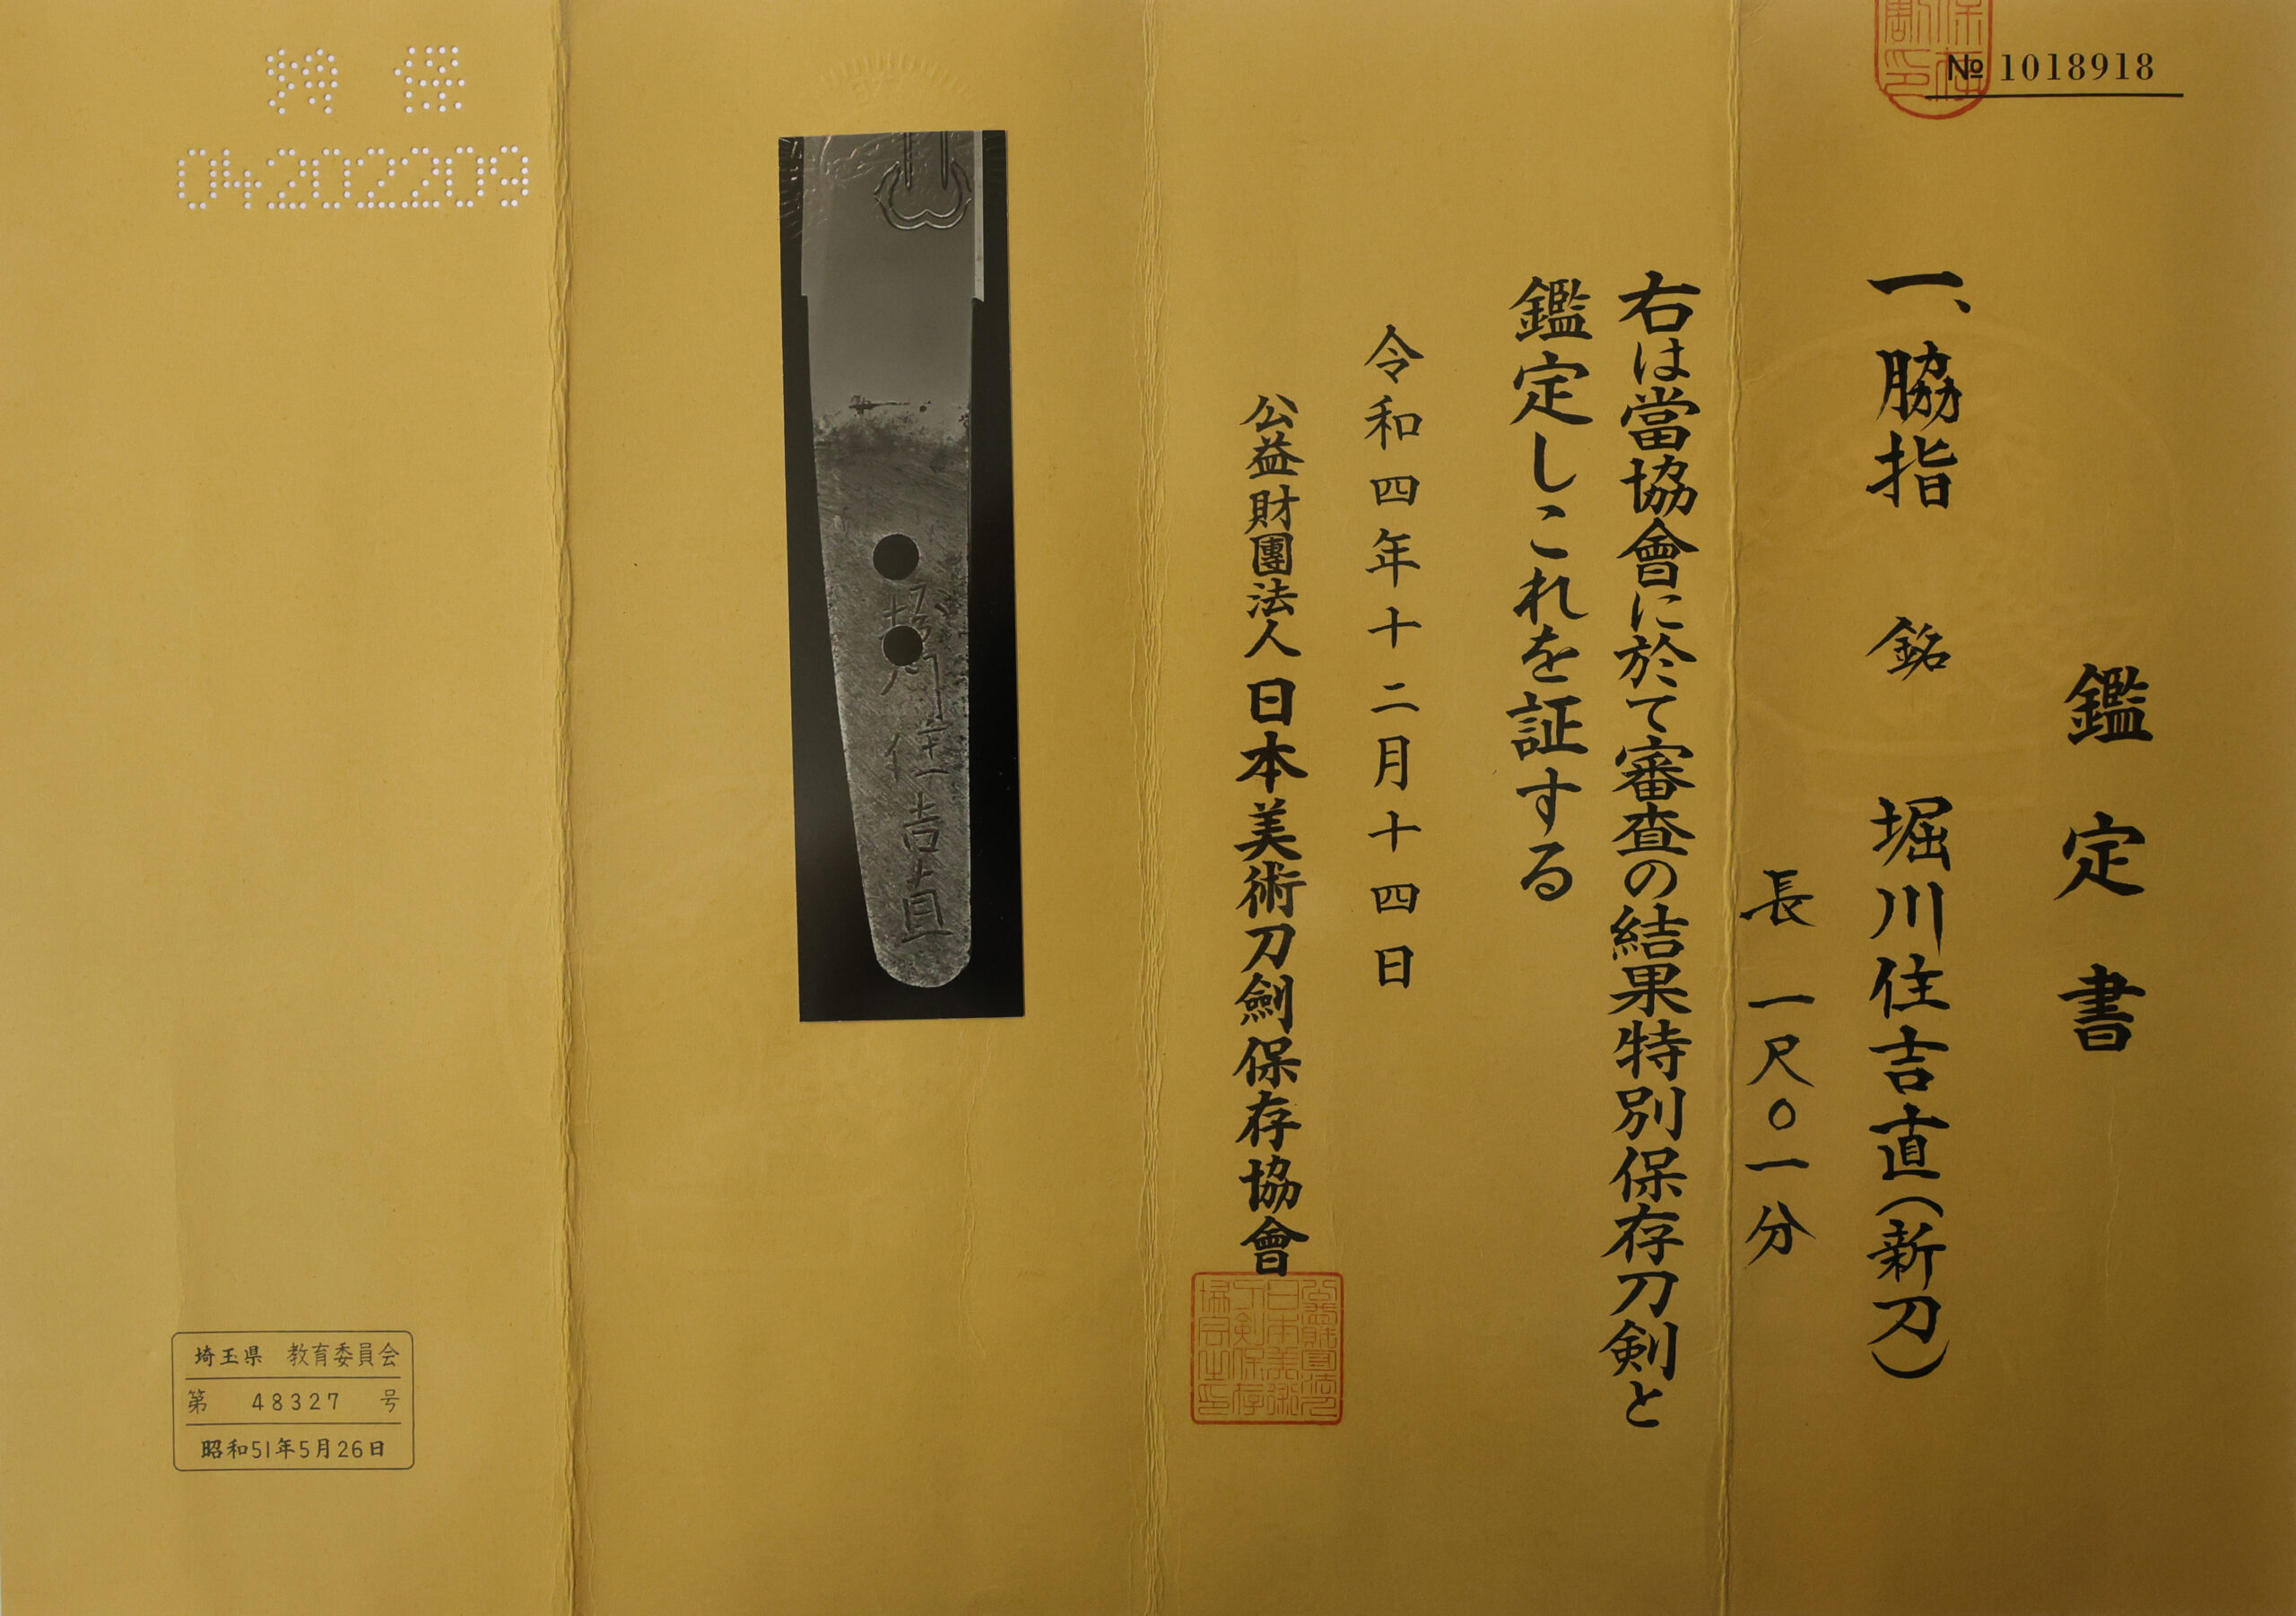 № 1018918
鑑定書
一、脇指 銘 堀川住吉直(新刀)
長 一尺〇一分
右は當協會に於て審査の結果特別保存刀剣と
鑑定しこれを証する
令和四年十二月十四日
公益財團法人日本美術刀劍保存協會
堀川住吉直
特保
04202209
埼玉県 教育委員会
第 48327 号
昭和51年5月26日